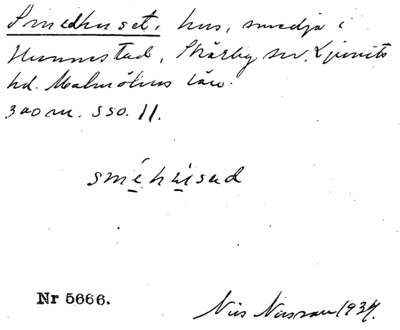 Smedhuset, hus, smedja i
Hunnestad, Skårby sn. Ljunits
hd. Malmöhus län.
300 m. SSO. 11.
sméhúsad
Nr 5666.
Nils 1934.